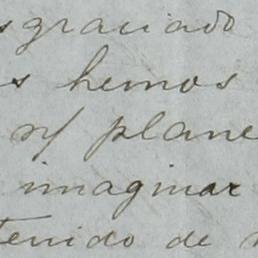 sgraciado
s hemos
n/ plane
imaginar
tenido de